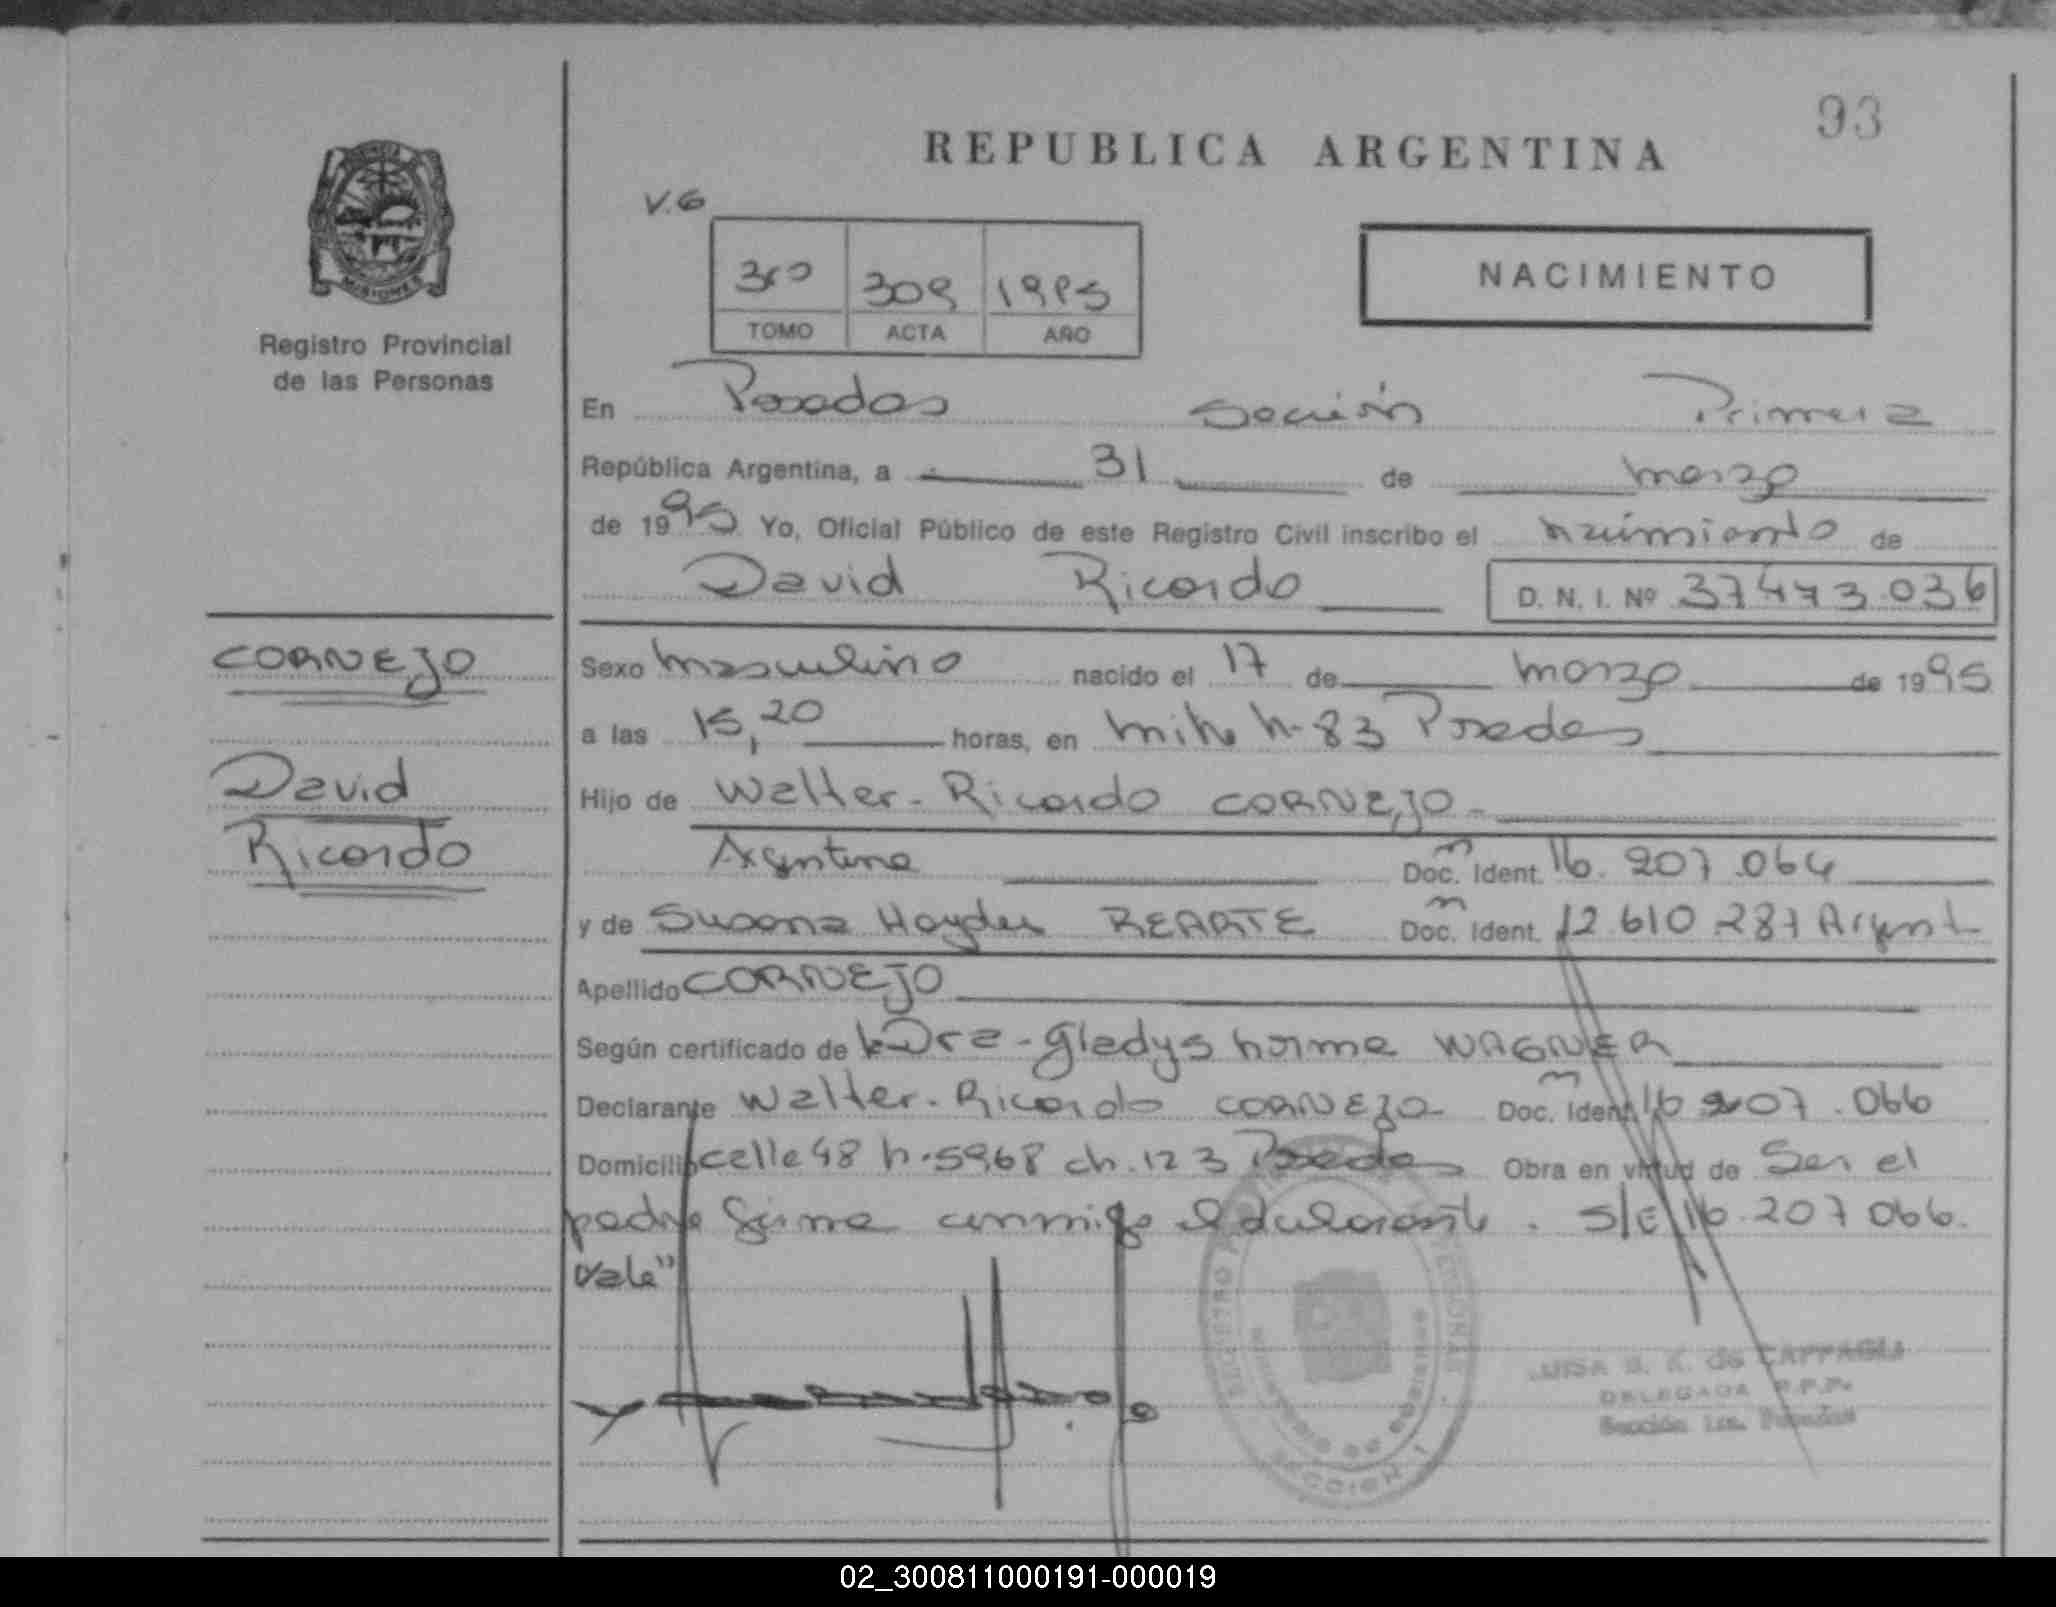 93
REPUBLICA ARGENTINA
V.6
309 1995
TOMO ACTA AÑO
NACIMIENTO
MISIONES
Registro Provincial
de las Personas
En Posadas Sección Primera
República Argentina, a 31 de marzo
de 1995 Yo, Oficial Público de este Registro Civil inscribo el nacimiento de
David Ricardo D. N. I. Nº 37473.036
CORNEJO
David
Ricardo
Sexo masculino nacido el 17 de marzo de 1995
a las 15,20 horas, en Posadas
Hijo de Walter Ricardo CORNEJO
Argentino Doc. Ident. 16.207.064
y de Susana Haydee REARTE Doc. Ident. 12 610 287 Argent
Apellido CORNEJO
Según certificado de Dra. Gladys Norma WAGNER
Declarante Walter Ricardo CORNEJO Doc. Ident. 16 207.066
Domicilio calle 48 n. 5968 ch. 123 Posadas Obra en virtud de Ser el
padre firma conmigo el declarante. S/E 16.207 066.
Vale"
SECCION 1
LUISA de
DELEGADA R.P.P.
Sección 1ra. Posadas
02_300811000191-000019